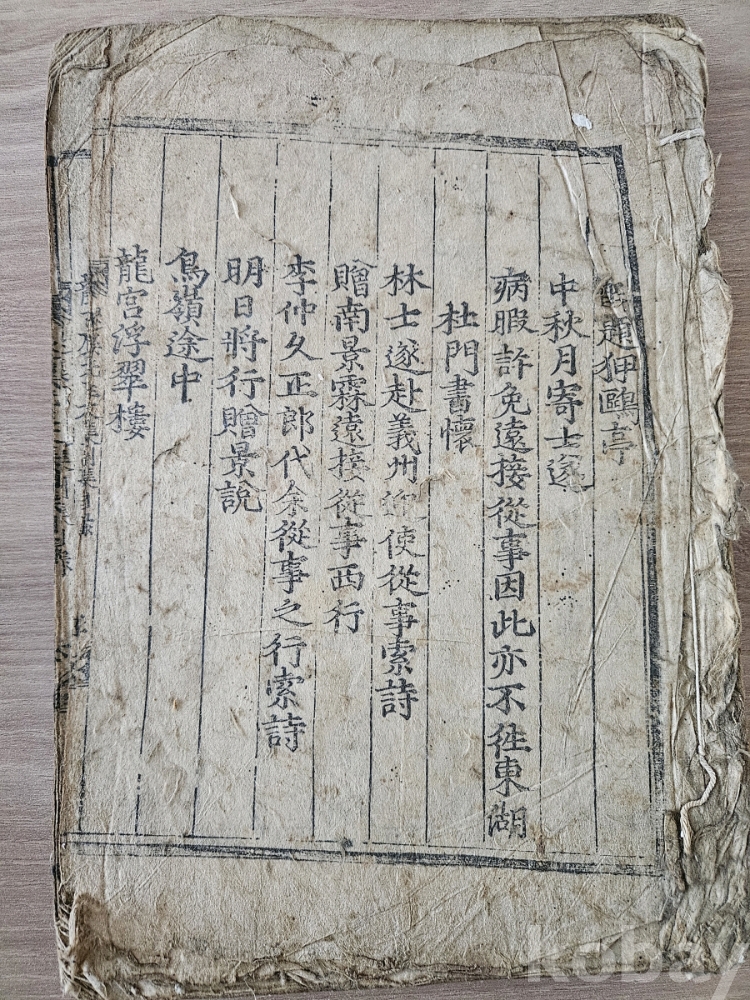 題狎鷗亭
中秋月寄士遂
病暇許免遠接從事因此亦不往東湖
杜門書懷
林士遂赴義州迎使從事索詩
贈南景霖遠接從事西行
李仲久正郎代余從事之行索詩
明日將行贈景說
鳥嶺途中
龍宮浮翠樓
kobay